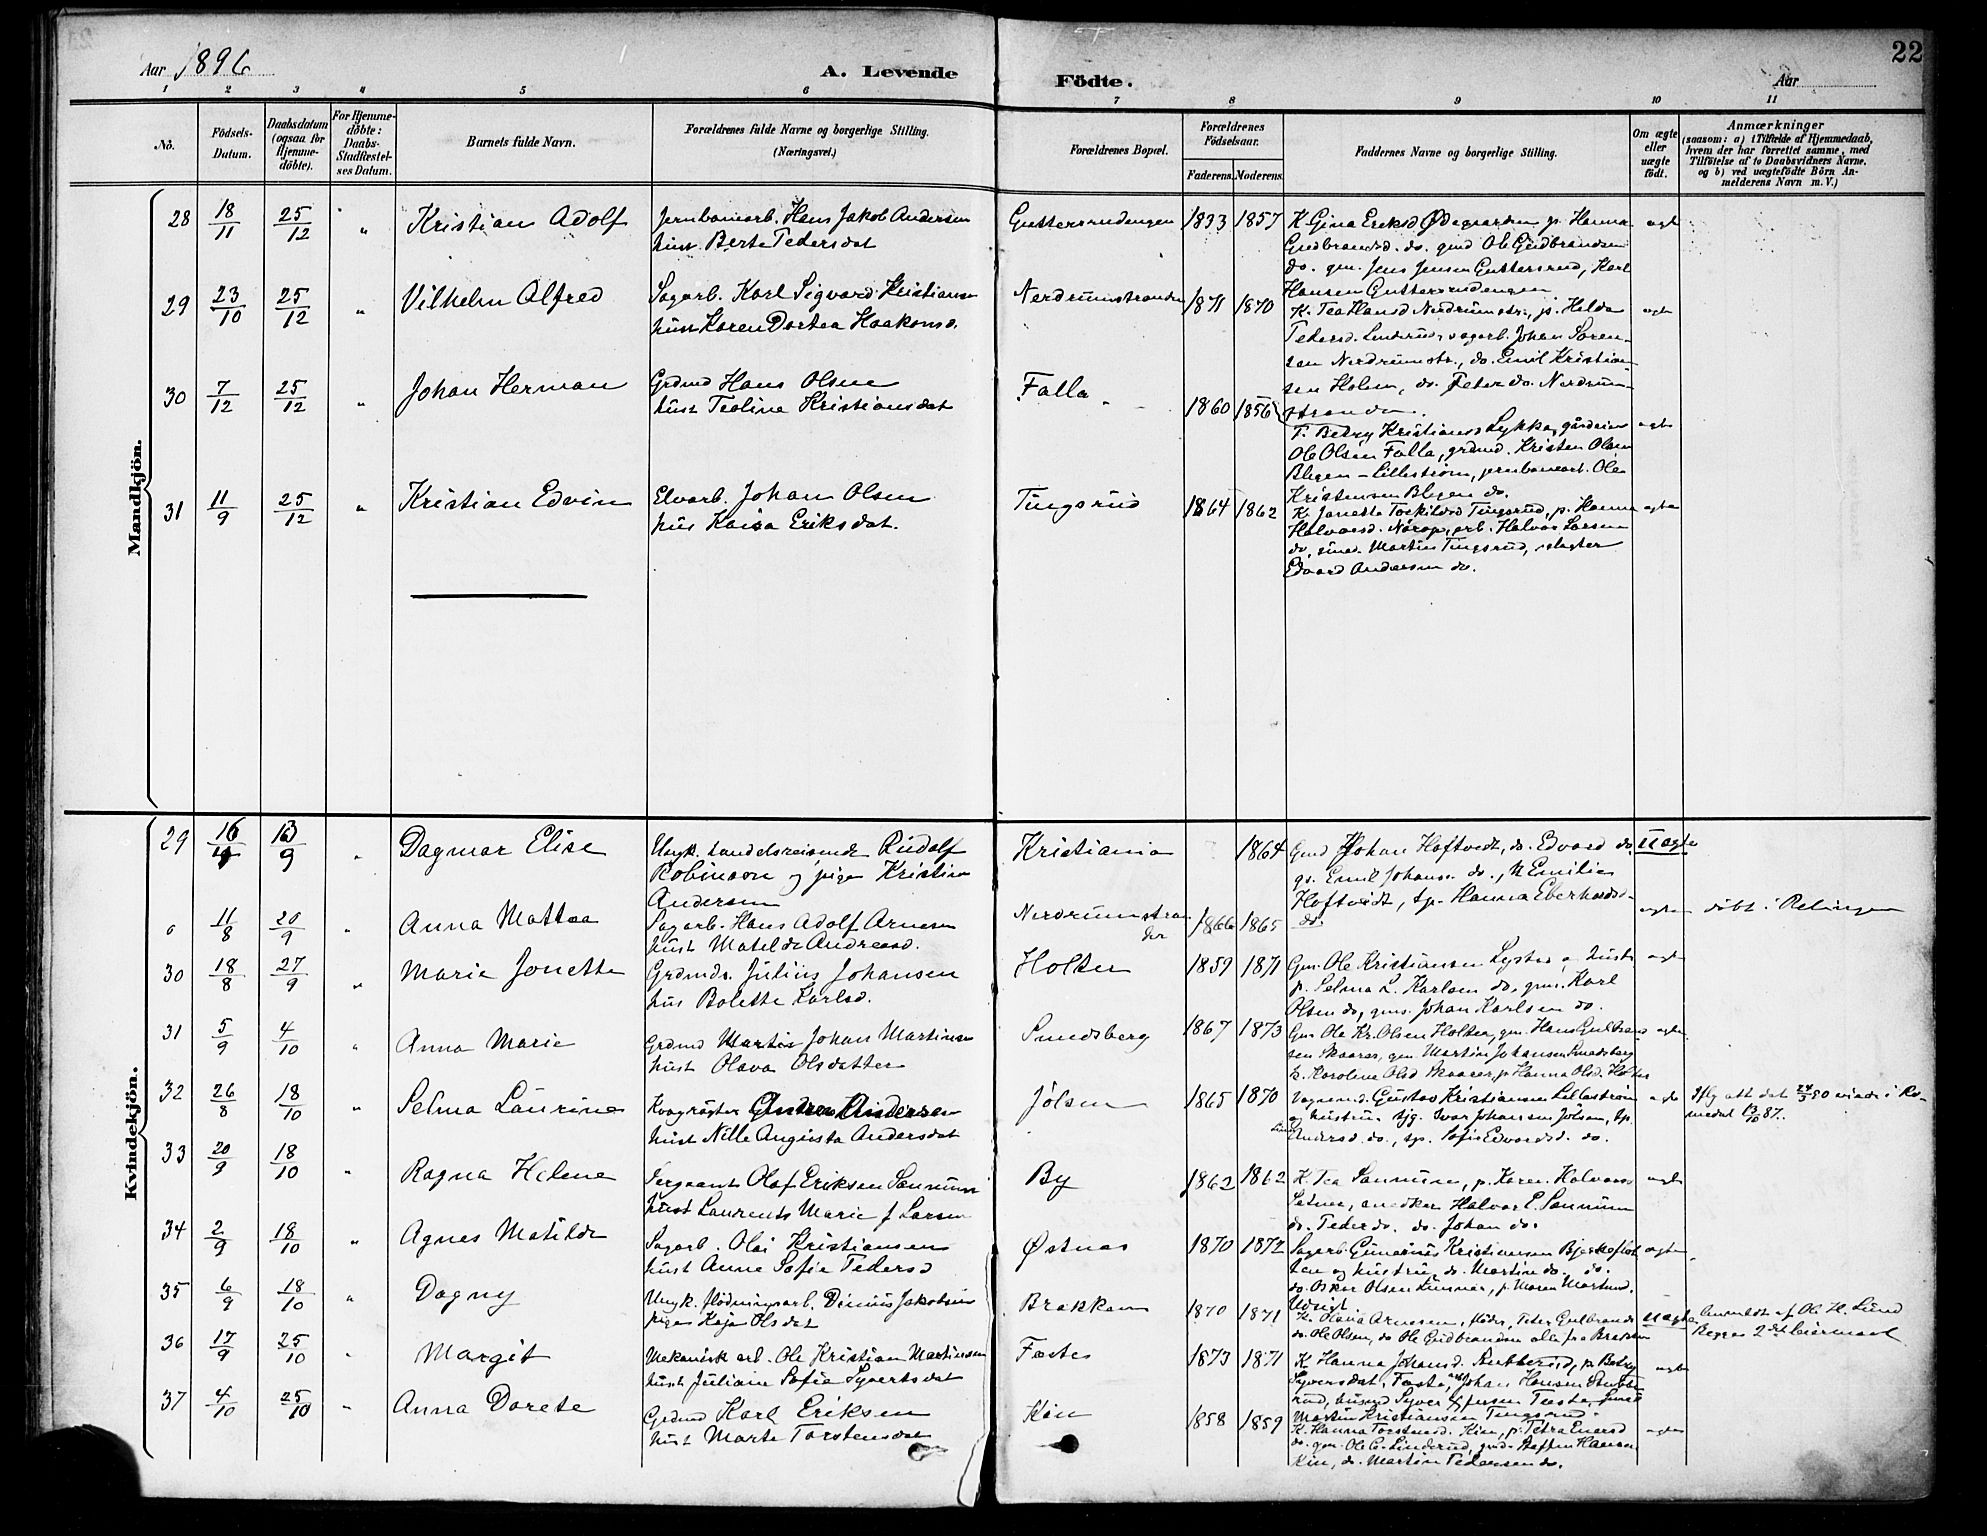 Aar 1896
A. Levende Födte.
Aar
22
1 2 3 4 5 6 7 8 9 10 11
No.
Födsels-Datum.
Daabsdatum (ogsaa for Hjemme-döbte).
For Hjemme-döbte: Daabs-Stadfæstel-ses Datum.
Barnets fulde Navn.
Forældrenes fulde Navne og borgerlige Stilling.
(Næringsvei.)
Forældrenes Bopæl.
Forældrenes Födselsaar.
Faderens. Moderens.
Faddernes Navne og borgerlige Stilling.
Om ægte eller uægte födt.
Anmærkninger
(saasom: a) i Tilfælde af Hjemmedaab, hvem der har forrettet samme, med Tilföielse af to Daabsvidners Navne, og b) ved uægtefödte Börn An-melderens Navn m. V.)
Mandkjön.
28 18/11 25/12 " Kristian Adolf
Jernbanearb. Hans Jakob Andersen
hust. Berte Pedersdat
Guttersrudengen 1833 1857
K. Gina Eriksd Ødegaarden p. Hanna
Gudbrandsd. do. gmd Ole Gudbrandsen
do. gm. Jens Jensen Guttersrud, Karl
Hansen Guttersrudengen
ægte
29 23/10 25/12 " Vilhelm Alfred
Sagarb. Karl Sigvard Kristiansen
hust Karen Dortea Haakonsd.
Nerdrumstranden 1871 1870
K. Tea Hansd Nerdrumstr., p. Helda
Pedersd. Linderud, sagarb. Johan Soren-
sen Nerdrumstr., do. Emil Kristian-
sen Holen, do. Peter do. Nerdrum-
stranden.
ægte
30 7/12 25/12 " Johan Herman
Grdmd Hans Olsen
hust Teoline Kristiansdat
Falla 1860 1856
T. Betzy Kristiansd Lykka, gårdeier
Ole Olsen Falla, grdmd. Kristen Olsen
Blegen - Lillestrøm, jernbanearb. Ole
Kristensen Blegen do.
ægte
31 11/9 25/12 " Kristian Edvin
Elvarb. Johan Olsen
hus Kaisa Eriksdat.
Tingsrud 1864 1862
K. Janette Torkildsd Tingsrud, p. Hanna
Halvorsd. , arb. Halvor Larsen
do, smed. Martin Tingsrud, slagter
Edvard Andersen do.
ægte
Kvindekjön.
29 16/4 13/9 " Dagmar Elise
Ungk. handelsreisende Rudolf
Robinson og pige Kristine
Andersen
Kristiania 1864
Gmd Johan Hoftvedt, do. Edvard do
gs. Emil Johans. do., K Emilie
Hoftvedt, tp. Hanna Eberhardsd.
do.
uægte
0 11/8 20/9 " Anna Mattea
Sagarb. Hans Adolf Arnesen
hust Matilde Andreasd.
Nerdrumstran
den
1866 1865
ægte
døbt i Relingen
30 18/8 27/9 " Marie Jonette
Grdmds. Julius Johansen
hus Bolette Karlsd.
Holter 1859 1871
Gm. Ole Kristiansen Lyster o. hust
p. Selma L. Karlsen do, gms. Karl
Olsen do, gms. Johan Karlsen do.
ægte
31 5/9 4/10 " Anna Marie
Grdmd Johan Martinsen
hust Olava Olsdatter
Smedsberg 1867 1873
Gm. Ole Kr. Olsen Holter, gm. Hans Gulbrand
sen Skaarer, gm. Martin Johansen Smedsberg
k. Karoline Olsd Skaarer, p. Hanna Olsd. Holter
ægte
32 26/8 18/10 " Selma Laurine
Kvægrøgter Andersen
hust Nille Augusta Andersdat
Jölsen 1865 1870
Vognmd. Gustav Kristiansen Lillestrøm
og hustru. tjg. Ivar Johansen Jølsen, tp.
Andersd. do., tp. Sofie Edvardsd. do.
ægte
Iflg att. dat 24/3 90 viede i Ro-
medal 13/10 87.
33 20/9 18/10 " Ragna Helene
Sergeant Olaf Eriksen Sannum
hust Laurents Marie f Larsen
By 1862 1862
K. Tea Sannum, p. Karen Halvorsd
, snedker Halvor E. Sannum
do. Peder do. do. Johan do.
ægte
34 2/9 18/10 " Agnes Matilde
Sagarb. Olai Kristiansen
hust Anne Sofie Pedersd
Østnes 1870 1872
Sagarb. Gunerius Kristiansen
ten og hustru, do. Martin do. do.
do. Oskar Olsen , p. Maren Martinsd.
Udrigt
ægte
35 6/9 18/10 " Dagny
Ungk. flødningsarb. Jakobsen
pige Kaja Olsdat
Brækken 1870 1871
K. Olava Arnesen, fløder Peter Gulbrands
do. Ole Olsen, do Ole Gudbrandsen alle fra Brækken
uægte
Anmeldt af Ole H. Lund
Begges 2det leiermaal
36 17/9 25/10 " Margit
Mekanisk arb. Ole Kristian Martinsen
hust Juliane Sofie Syvertsdat
Faste 1873 1871
K Hanna Johansd. Stubberud, p. Betzy
Syversdat. Faste, Johan Hansen Stubbe
rud, husmd Syver Faste, Smed
Martin Kristiansen Tingsrud.
ægte
37 4/10 25/10 " Anna Dorete
Grdmd Karl Eriksen
hust Marte Torstensdat
Kiu 1858 1859
K. Hanna Torstensd. Kiu, p. Petra Einersd
do. gm. Ole C. Linderud, gmd. Steffen Hansen
Kiu, do. Martin Pedersen do.
ægte